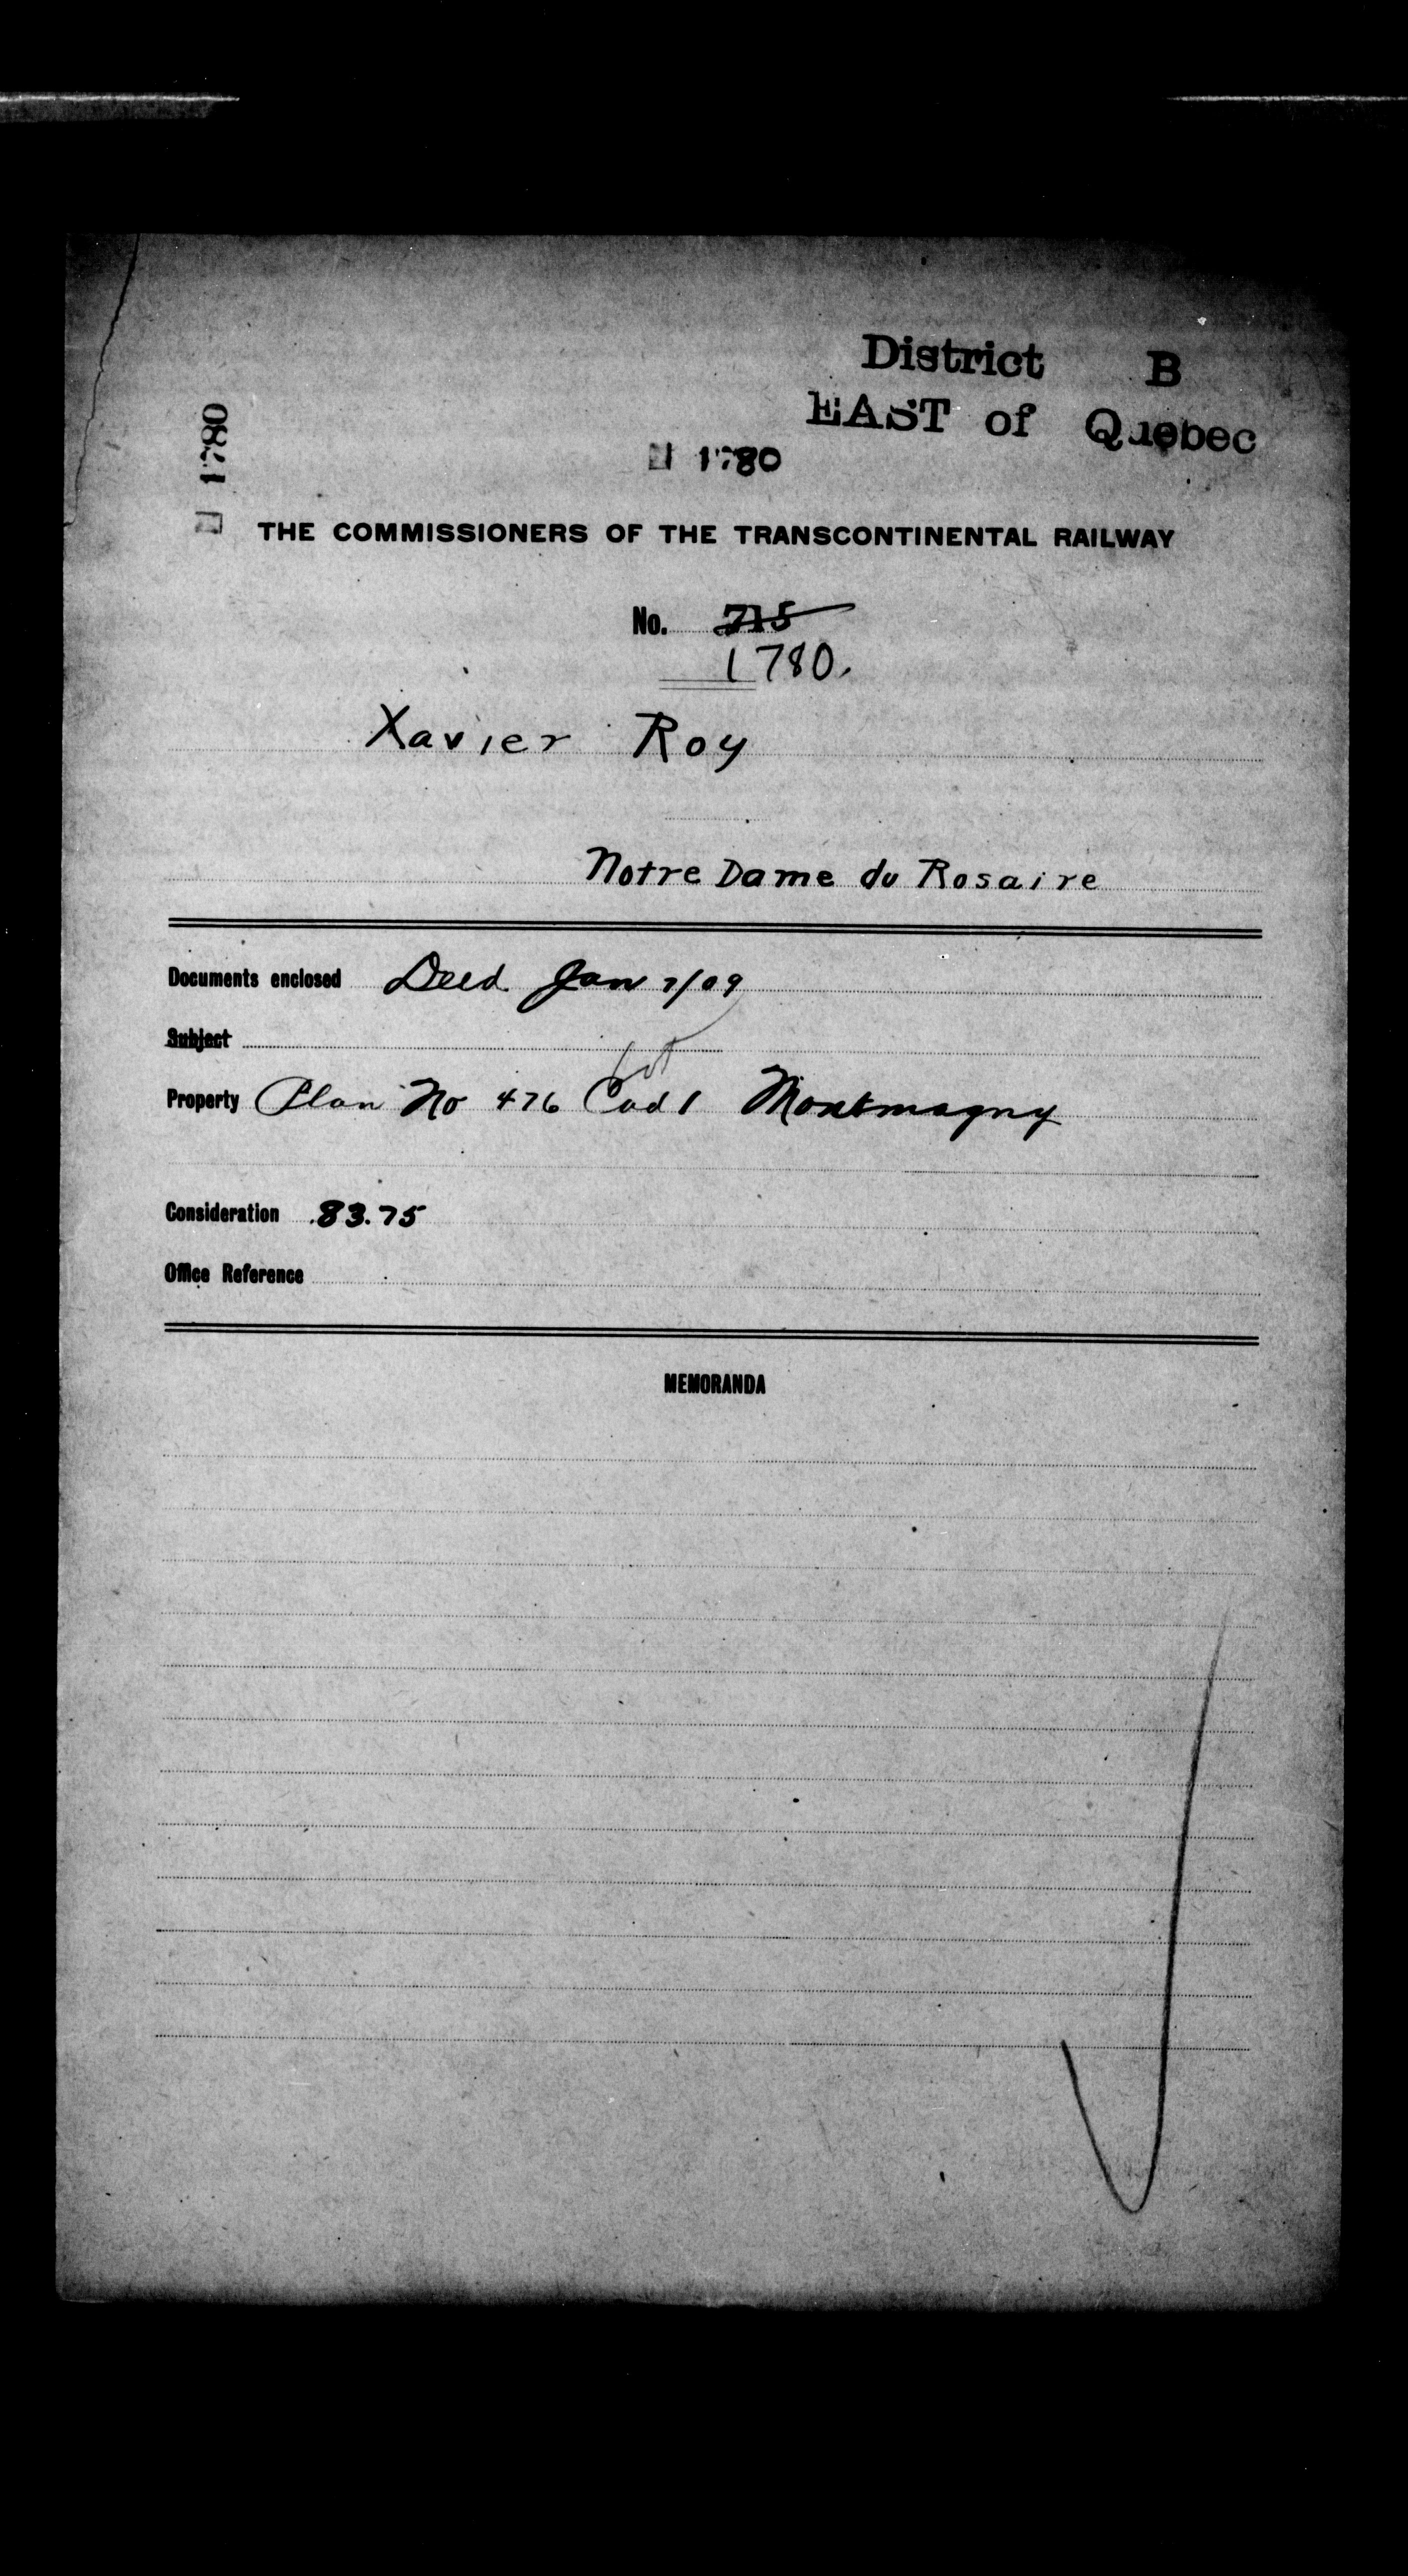 District B
EAST of Quebec
1780
1780
THE COMMISSIONERS OF THE TRANSCONTINENTAL RAILWAY
No. 715
1780.
Xavier Roy
Notre Dame du Rosaire
Documents enclosed Deed Jan 7/09
Subject
lot
Property Plan No 476 Cad 1 Montmagny
Consideration 83.75
Office Reference
MEMORANDA